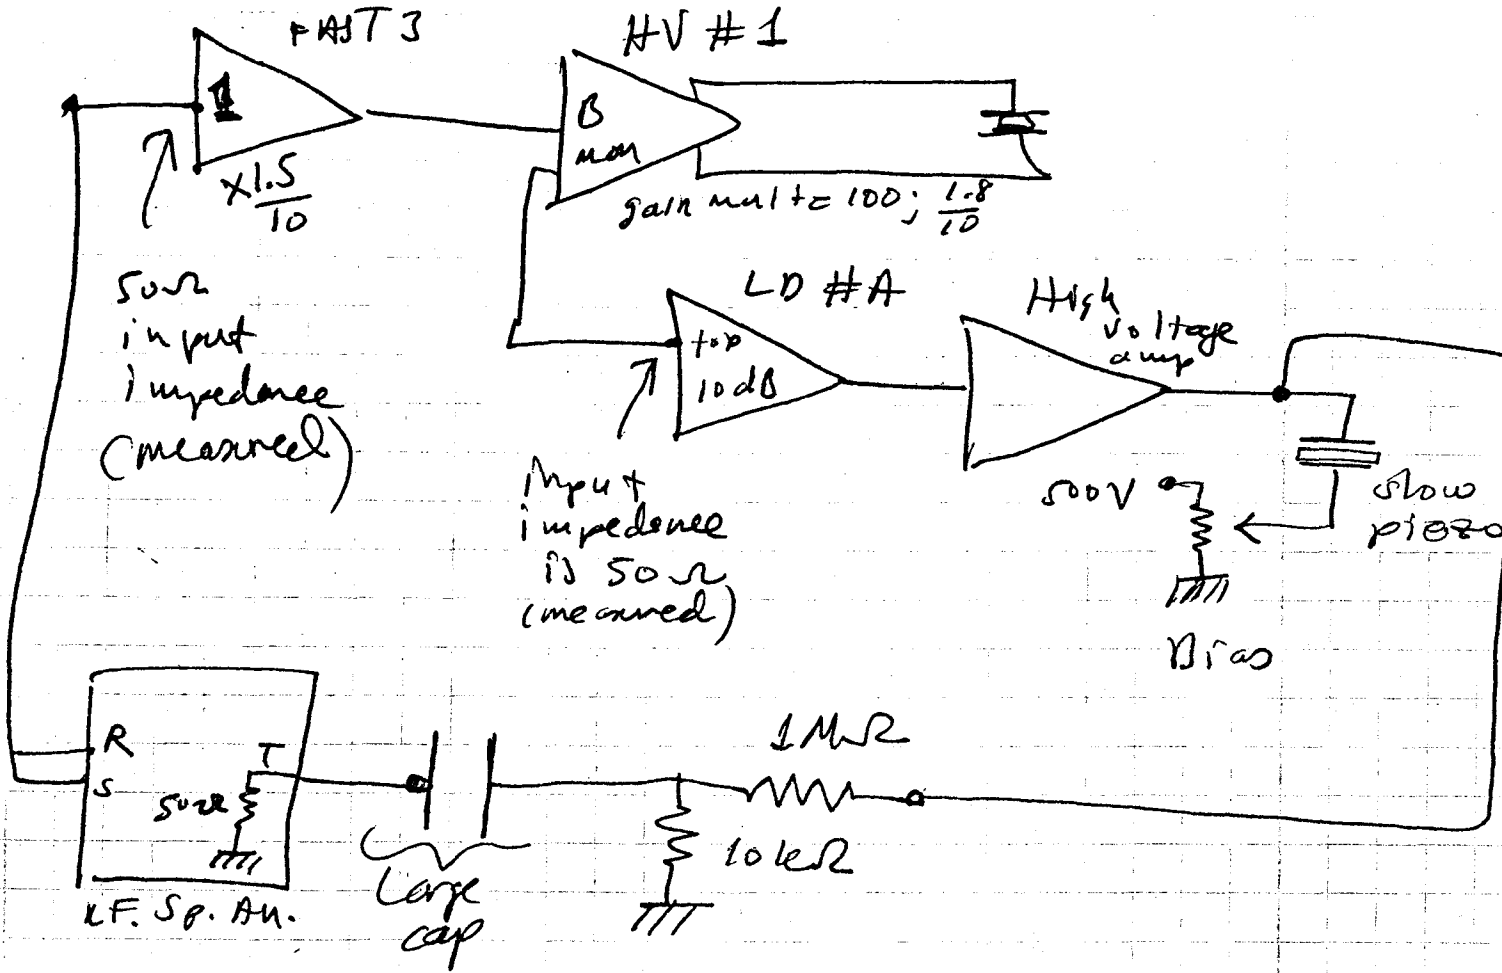 FAST 3
HV #1
1
x1.5/10
B
mon
gain mult = 100; 1.8/10
50Ω
input
impedance
(measured)
LD #A
top
10dB
High
voltage
amp
input
impedance
is 50Ω
(measured)
500V
slow
piezo
Bias
R
S
T
50Ω
1MΩ
10kΩ
Large
cap
RF. Sp. An.